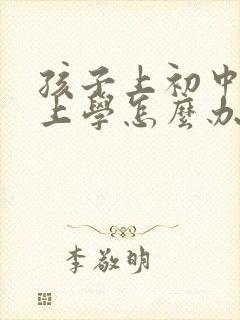 孩子上初中
上學怎麼办
李敬明